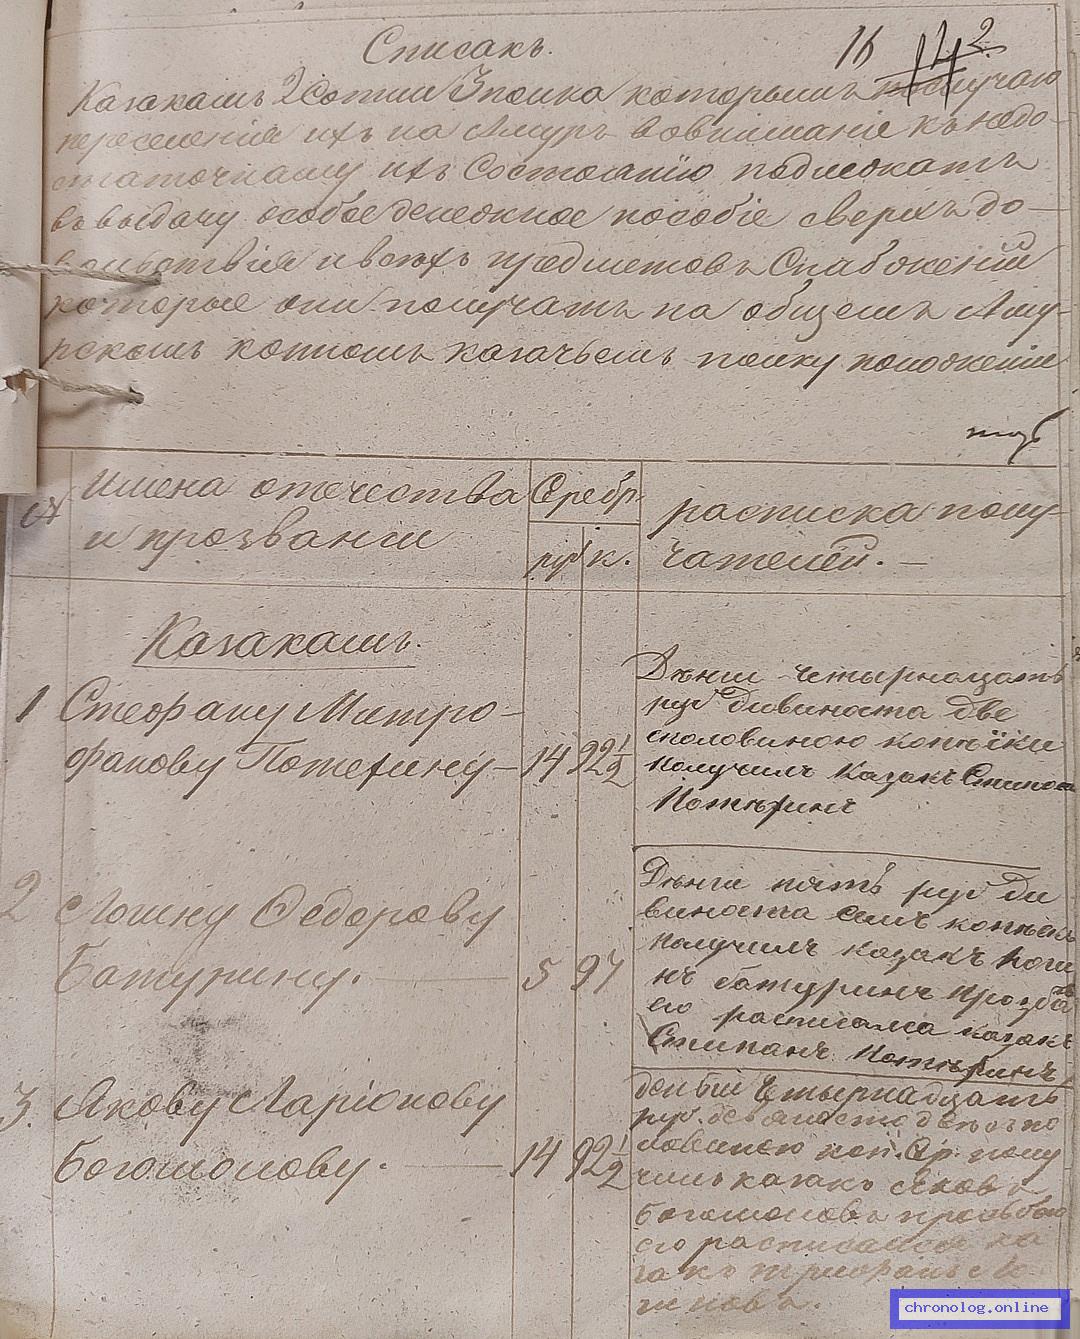 Списакъ.
16 142
Казакамъ 2 Сотни 3 полка которымъ
переселенія ихъ на Амуръ вовниманіе къ недо-
статочнаму ихъ Состоянію подлежатъ
въ выдачу особое денежное пособіе сверхъ до-
вольствія и всехъ предметовъ Снабженій
которые они получатъ на общемъ Аму-
рскомъ конномъ казачьемъ полку положеніи
Имена отечества
и прозваніи
Серебр.
руб к.
расписка полу-
чателей.
Казакамъ.
1 Стефану Митро-
фанову Потехину 14 92 1/2
Дѣнги четырнацатъ
руб дивиноста две
споловиною копѣйки
получилъ Казакъ Стипан
Потѣхинъ
2 Логину Федорову
Батурину. 5 97
Дѣнги пять руб ди
виноста семъ копѣекъ
получилъ казакъ Логи
нъ батуринъ
его расписался казакъ
Стипанъ Потѣхинъ
3. Якову Ларіонову
Богомолову. 14 92 1/2
денгіи Четырнадцать
руб. девяносто две съ по
ловиною коп. Ср. полу
чилъ казакъ Яковъ
богомоловъ прозбою
его расписался ка
закъ трифонъ Ло
гиновъ.
chronolog.online